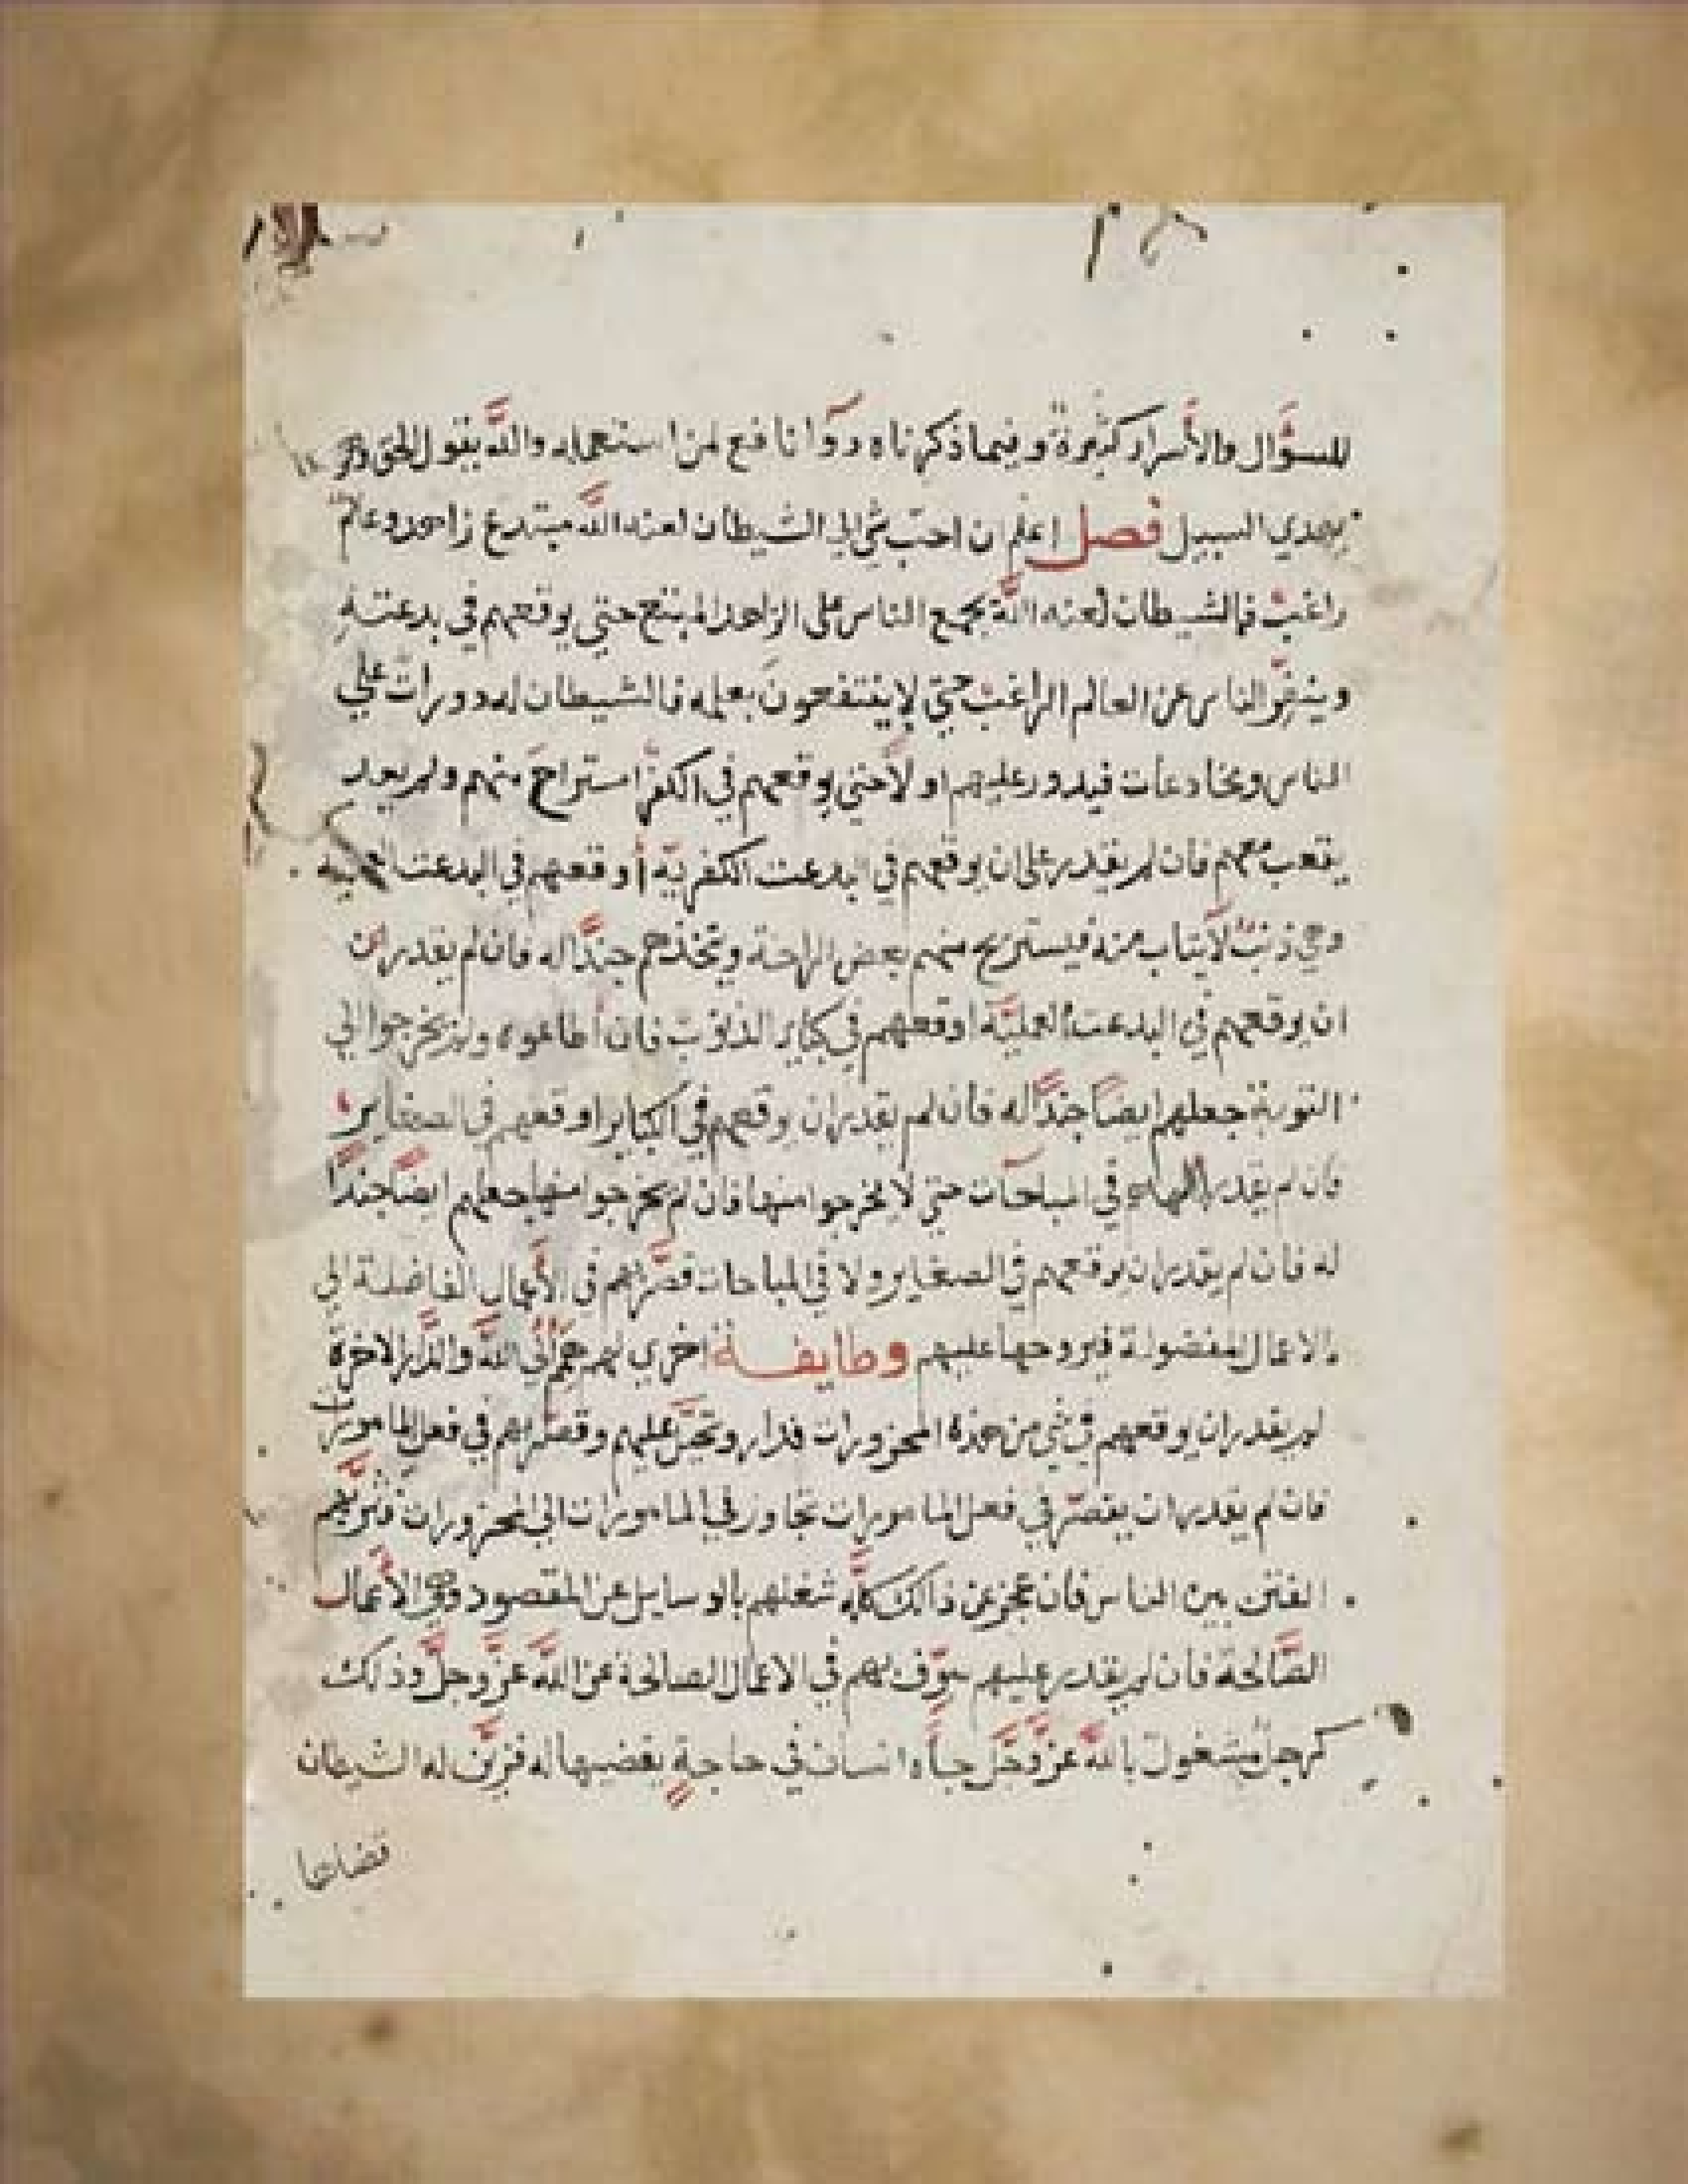 للسؤال والأسرار كثيرة وفيما ذكرناه دوآنا فع لمن استعمله والله يقول الحق وهو
يهدي السبيل فصل إعلم ان احبّ شي الي الشيطان لعنه الله مبتدع زاهد وعالم
راغب فالشيطان لعنه الله يجمع الناس على الزاهد المبتدع حتى يوقعهم في بدعته
وينفّر الناس عن العالم الراغب حتى لا ينتفعون بعلمه فالشيطان له دورات علي
الناس ومخادعات فيدور عليهم اولاً حتى يوقعهم في الكفر استراح منهم ولم يعد
يتعب معهم فان لم يقدر على ان يوقعهم في البدعت الكفريّة أوقعهم في البدعت
وهي ذنبٌ لا يتاب منه فيستريح منهم بعض الراحة ويتخذهم جنداً له فان لم يقدر ان
ان يوقعهم في البدعت العمليّة اوقعهم في كباير الذنوب فان أطاعوه ولم يخرجوا الي
التوبة جعلهم ايضاً جنداً له فأن لم يقدر ان يوقعهم في الكباير اوقعهم في الصغاير
فان لم يقدر في المباحات حتى لا يخرجوا منها فان لم يخرجوا منها جعلهم ايضاً جنداً
له فان لم يقدر ان يوقعهم في الصغاير ولا في المباحات قصّر بهم في الأعمال الفاضلة الي
الاعمال المفضولة فيروحها عليهم وظايفة اخري لهم الله والدار الاخرة
لم يقدر ان يوقعهم في شي من هذه المحزورات فدار وتحيّل عليهم وقصّر بهم في فعل المامورات
فان لم يقدر ان يقصّر في فعل المامورات تجاوز في المامورات الي المحزورات
الفتن بين الناس فان عجز عن ذالك كلّه شغلهم بالوسايل عن المقصود وهي الأعمال
الصّالحة فان لم يقدر عليهم سوّف بهم في الاعمال الصالحة عن الله عزّ وجلّ وذلك
كرجل مشغول بالله عزّ وجلّ جاءه انسان في حاجةٍ يقضيها له فزيّن له الشيطان
قضاها